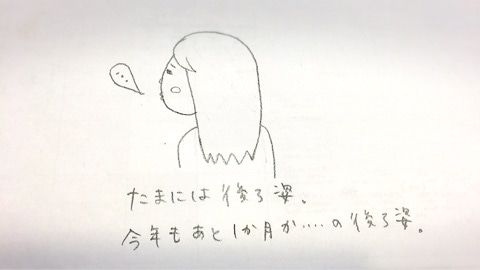 たまには後ろ姿。
今年もあと1か月か・・・・の後ろ姿。